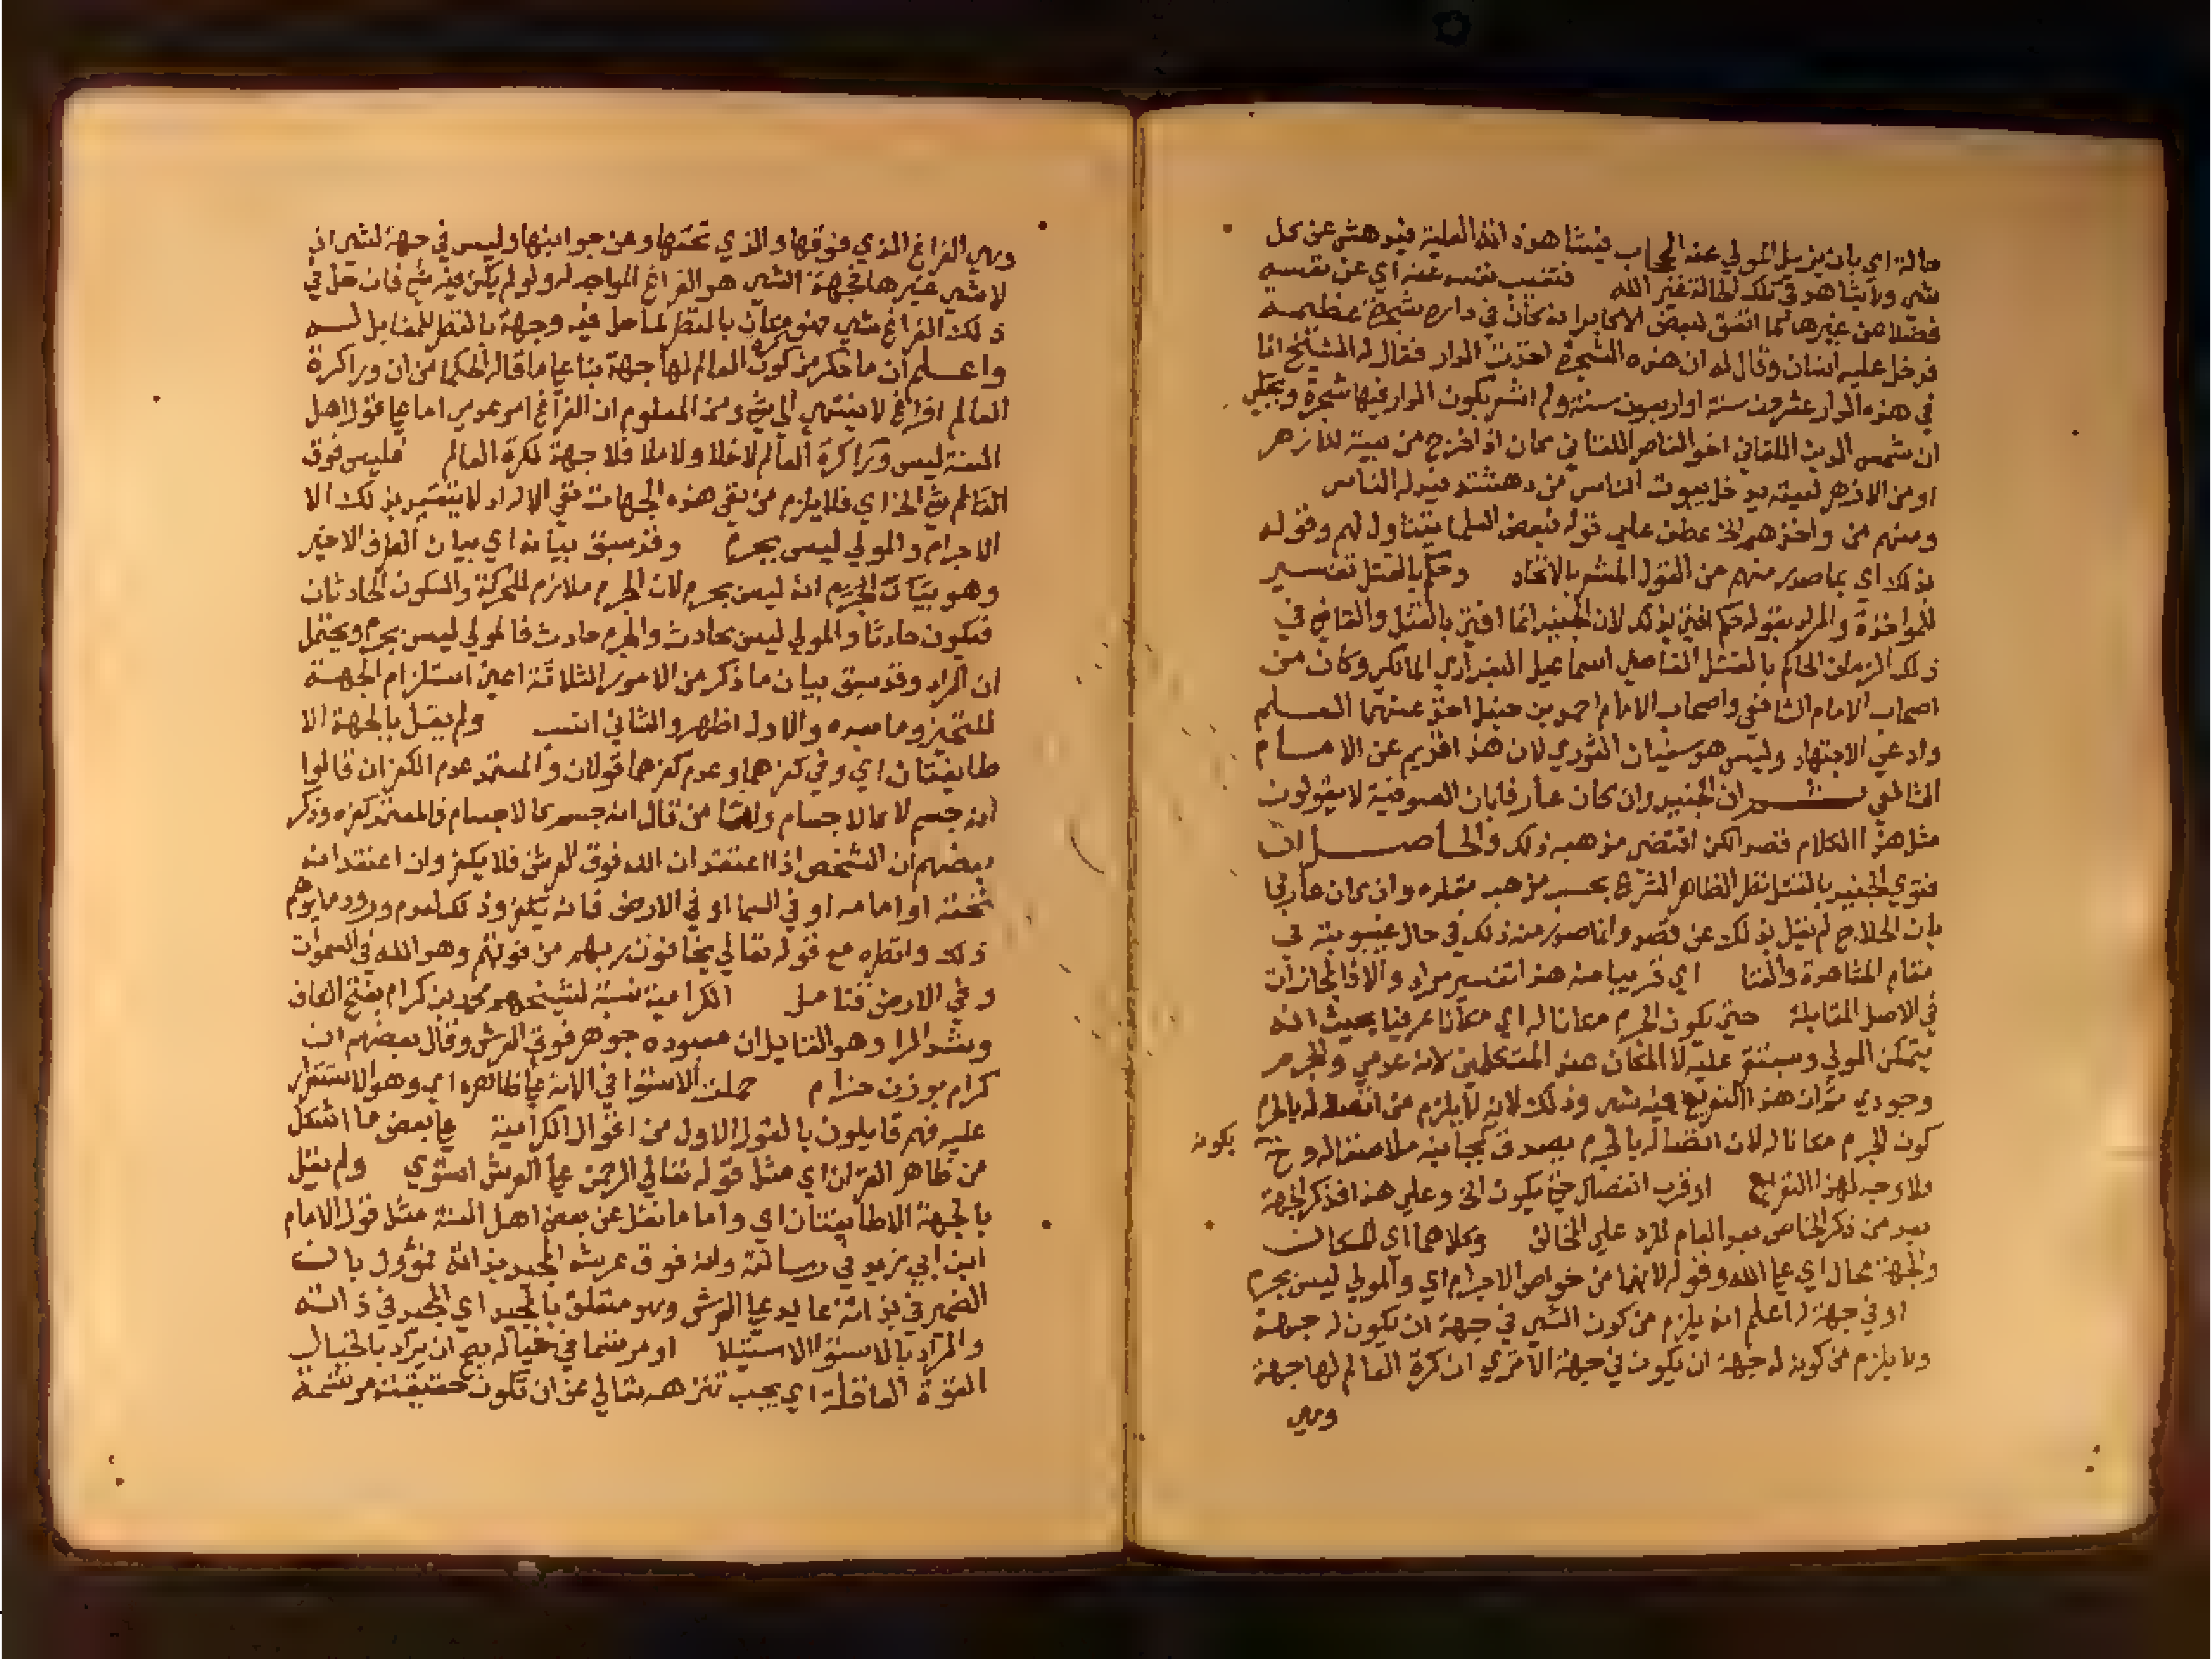 حالة اي بان يزيل المولي عنه الحجاب فيشاهد ذاته العلية فيدهش عن كل
شي ولا يشاهد في تلك الحالة غير الله فتغيب نفسه عنه اي عن نفسه
فضلا عن غيرها كما اتفق لبعض الاكابر انه كان في داره شجرة عظيمة
فدخل عليه انسان وقال له ان هذه الشجرة اخذت الدار فقال له الشيخ انا
في هذه الدار عشرين سنة او اربعين سنة ولم اشعر بكون الدار فيها شجرة ويحكي
ان شمس الدين اللقاني اخو الناصر اللقاني كان اذا خرج من بيته للازهر
او من الازهر لبيته يدخل بيوت الناس من دهشته فيدله الناس
ومنهم من واخذهم الخ عطف علي قوله فبعض العلما يتناول لهم وقوله
بذلك اي بما صدر منهم من القول المشعر بالاتحاد وحكم بالقتل تفسير
للمواخذة والمراد بقوله حكم افتي بذلك لان الجنيد انما افتي بالقتل والقاضي في
ذلك الزمان الحاكم بالقتل القاضي اسماعيل البغدادي المالكي وكان من
اصحاب الامام الشافعي واصحاب الامام احمد بن حنبل اخذ عنهما العلم
وادعي الاجتهاد وليس هو سفيان الثوري لان هذا قديم عن الامام
الشافعي ثم ان الجنيد وان كان عارفا بان الصوفية لا يقولون
مثل هذا الكلام قصدا لكن اقتضي مذهبه ذلك والحاصل ان
فتوي الجنيد بالقتل نظرا لظاهر الشرع بحسب مذهب مقلده وان كان عارفا
بان الحلاج لم يقل ذلك عن قصد وانما صدر منه ذلك في حال غيبوبته في
مقام المشاهدة والفنا اي قريبا منه هذا تفسير مراد والا فالمحاذات
في الاصل المقابلة حتي يكون الجرم مكانا له اي مكانا عرفيا بحيث انه
يتمكن المولي ويستقر عليه لا المكان عند المتكلمين لانه عدمي والجرم
وجودي ثم ان هذا التفريع فيه شي وذلك لانه لا يلزم من اتصاله بالجرم
كون الجرم مكانا له لان اتصاله بالجرم يصدق بجانبه ملاصقا له وح
بكونه
فلا وجه لهذا التفريع او قرب انفصال حتي يكون الخ وعلي هذا فذكر الجهة
بعد من ذكر الخاص بعد العام للرد علي المخالف وكلاهما اي المكان
والجهة محال اي علي الله وقوله لانهما من خواص الاجرام اي والمولي ليس بجرم
او في جهة له اعلم انه يلزم من كون الشي في جهة ان يكون له جهة
ولا يلزم من كونه له جهة ان يكون في جهة الا تري ان كرة العالم لها جهة
وهي
وهي الفراغ الذي فوقها والذي تحتها ومن جوانبها وليس في جهة لشي اذ
لا شي غيرها فجهة الشي هو الفراغ المواجه له ولو لم يكن فيه شي فان حل في
ذلك الفراغ شي فهو مكان بالنظر لما حل فيه وجهة بالنظر للمقابل له
واعلم ان ما ذكر من كون كرة العالم لها جهة بنا علي ما قاله الحكما من ان ورا كرة
العالم افراغ لا ينتهي الي شي ومن المعلوم ان الفراغ امر عدمي اما علي قول اهل
السنة ليس ورا كرة العالم لا خلا ولا ملا فلا جهة لكرة العالم فليس فوق
العالم شي الخ اي فلا يلزم من نفي هذه الجهات نفي الاله اذ لا يتقيد بذلك الا
الاجرام والمولي ليس بجرم وقد سبق بيانه اي بيان الطرف الاخير
وهو بيان الجرم انه ليس بجرم لان الجرم ملازم للحركة والسكون الحادثان
فيكون حادثا والمولي ليس بحادث والجرم حادث فالمولي ليس بجرم ويحتمل
ان المراد وقد سبق بيان ما ذكر من الامور الثلاثة اعني استلزام الجهة
للتحيز وما بعده والاول اظهر والثاني انسب ولم يقل بالجهة الا
طايفتان اي وفي كفرهما وعدم كفرهما قولان والمعتمد عدم الكفر ان قالوا
انه جسم لا كالاجسام واما من قال انه جسم كالاجسام فالمعتمد كفره وذكر
بعضهم ان الشخص اذا اعتقد ان الله فوق العرش فلا يكفر وان اعتقد انه
تحته او امامه او في السما او في الارض فانه يكفر وذلك لعدم ورود ما يوهم
ذلك وانظره مع قوله تعالي يخافون ربهم من فوقهم وهو الله في السموات
وفي الارض فتامل الكرامية نسبة لشيخهم محمد بن كرام بفتح الكاف
وبشد الرا وهو القايل ان معبوده جوهر فوق العرش وقال بعضهم ان
كرام بوزن حزام حملت الاستوا في الاية علي ظاهره اي وهو الاستقرار
عليه فهم قايلون بالقول الاول من اقوال الكرامية علي بعض ما اشكل
من ظاهر القران اي مثل قوله تعالي الرحمن علي العرش استوي ولم يقل
بالجهة الا طايفتان اي واما ما نقل عن بعض اهل السنة مثل قول الامام
ابن ابي زيد في رسالته وانه فوق عرشه المجيد بذاته فمؤول بان
الضمير في بذاته عايد علي العرش وهو متعلق بالمجيد اي المجيد في ذاته
والمراد بالاستوا الاستيلا او مرتسما في خياله يصح ان يراد بالخيال
القوة العاقلة اي يجب تنزهه تعالي عن ان تكون حقيقته مرتسمة